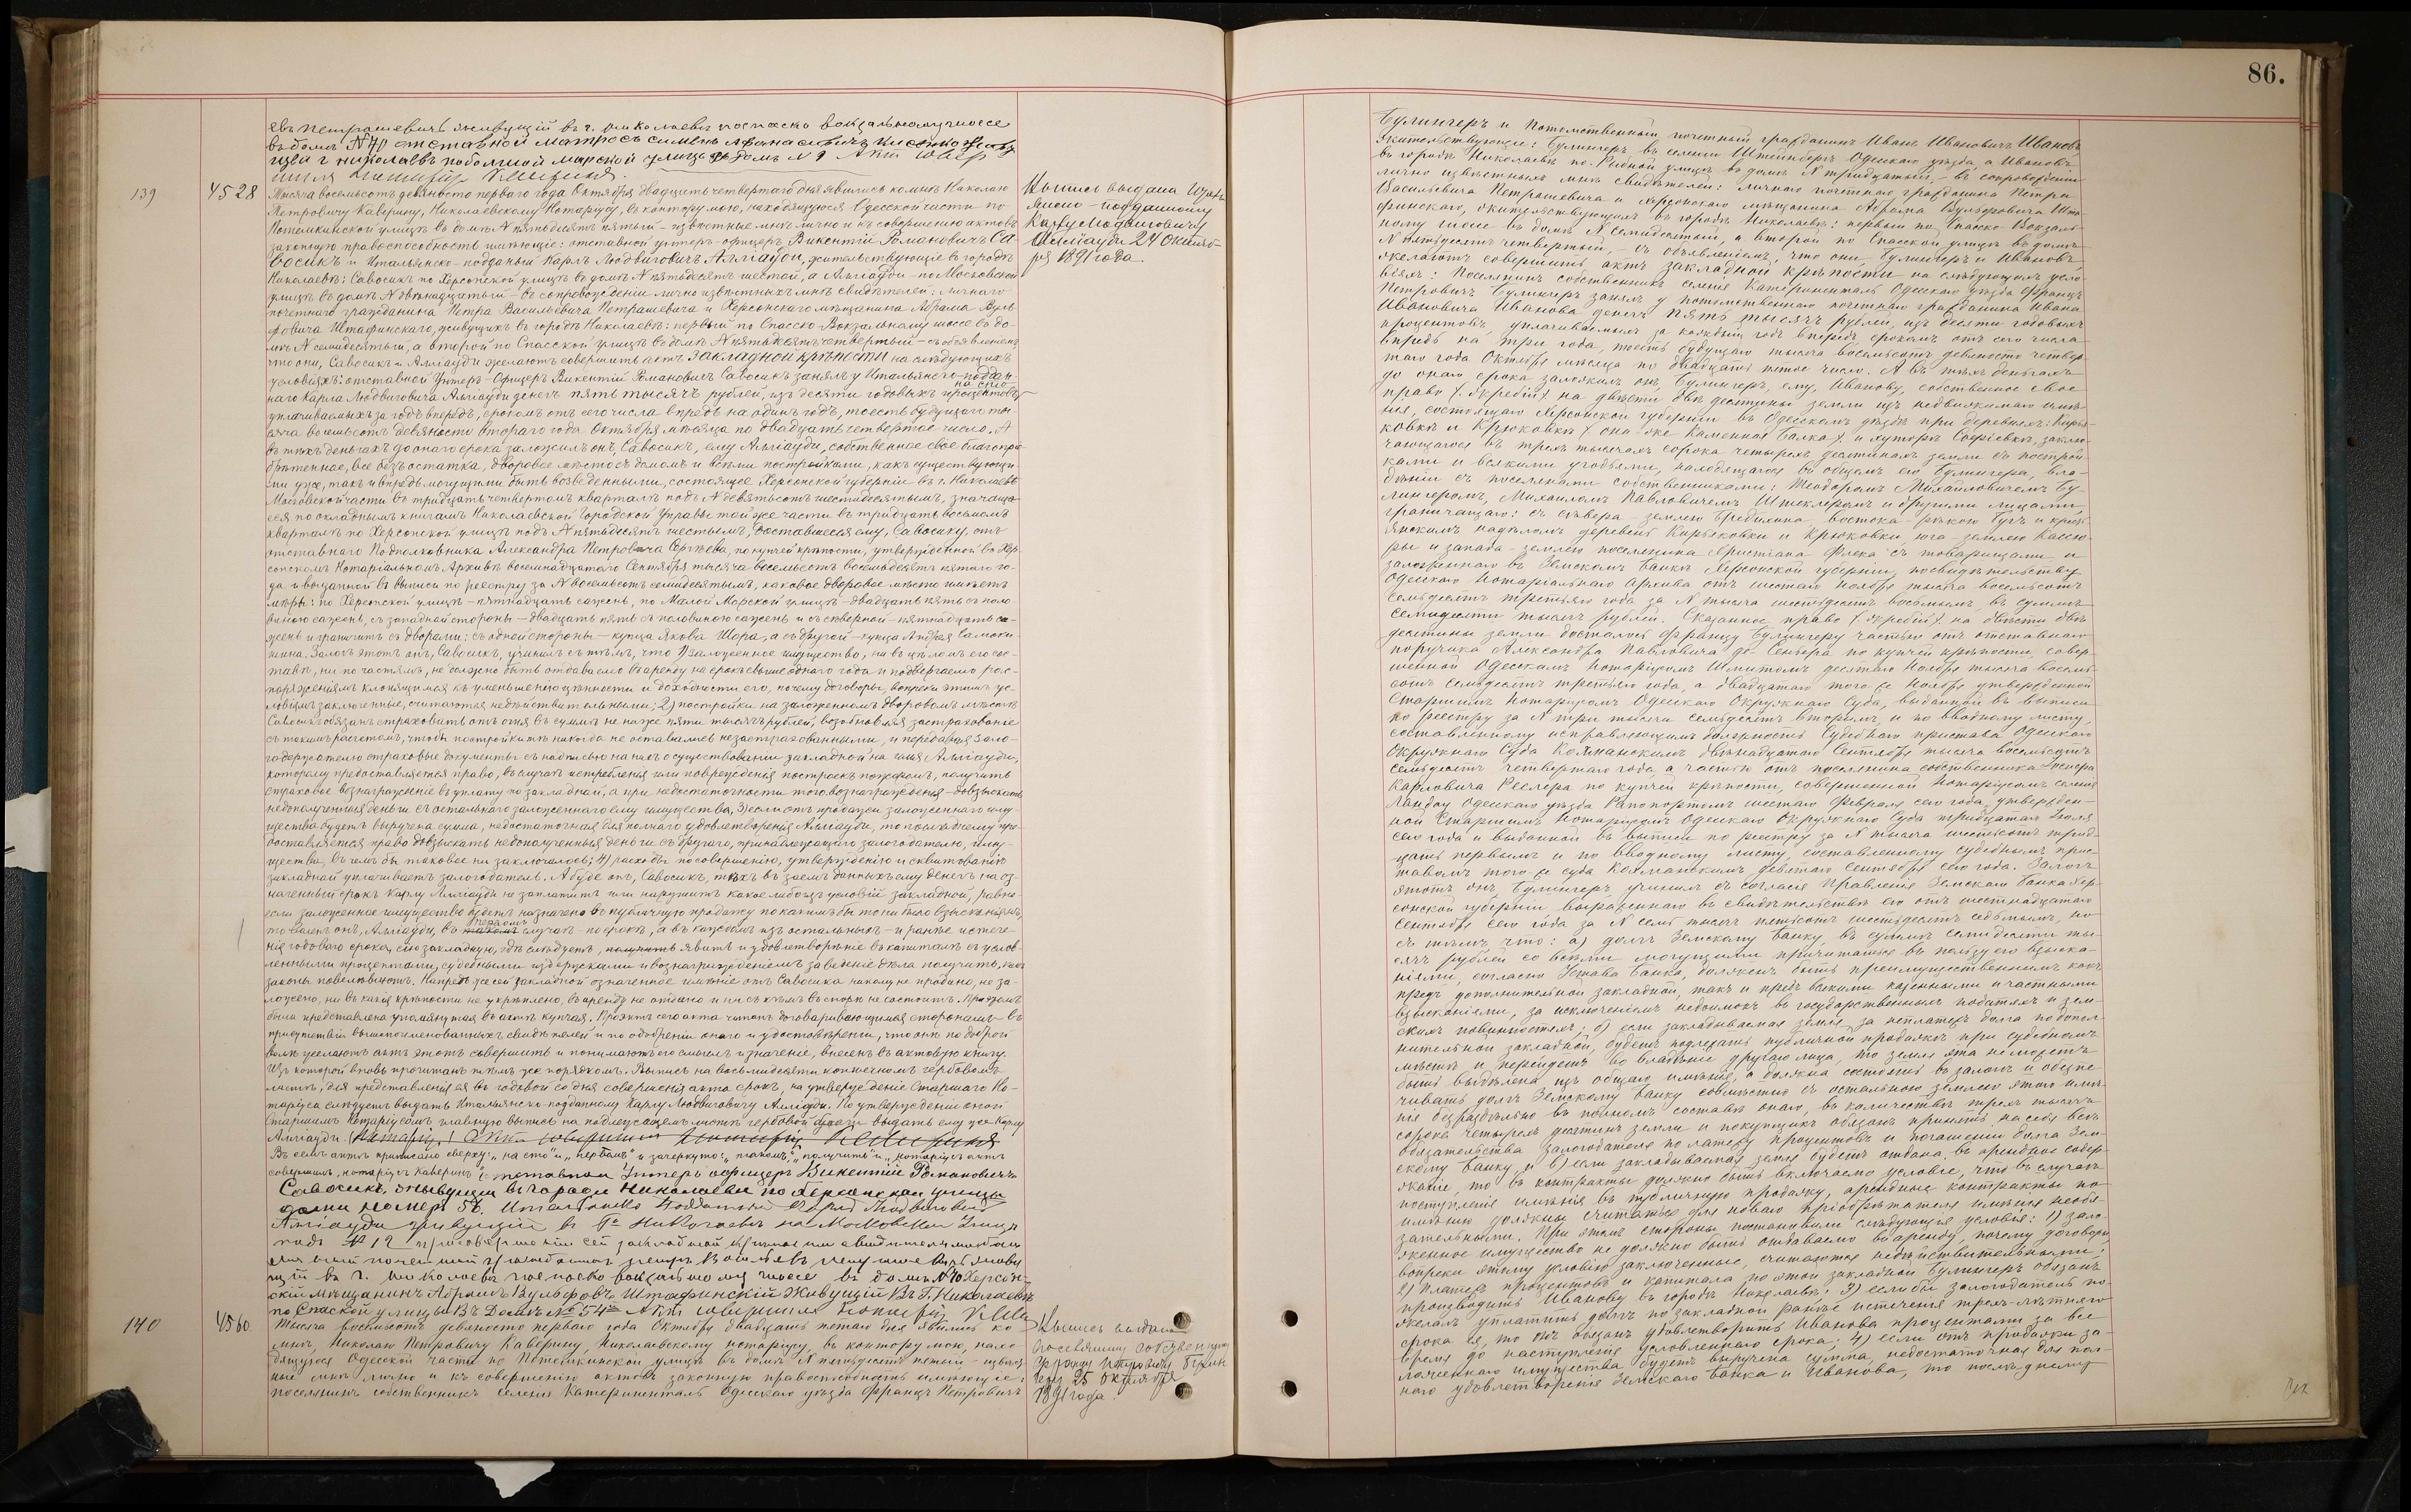 86.
евъ Петрашевичъ живущій въ г. Николаевѣ по Спаско вокзальному шоссе
въ домѣ № 70 отставной матросъ
г Николаевѣ по большой морской улицѣ въ домѣ № 9 Актъ совер
шилъ Нотаріусъ Каверинъ.
139
4528
Тысяча восемьсотъ девяносто перваго года Октября двадцать четвертаго дня явились ко мнѣ Николаю
Петровичу Каверину, Николаевскому Нотаріусу, въ контору мою, находящуюся Одесской части по
Потемкинской улицѣ въ домѣ № пятьдесятъ пятый – извѣстные мнѣ лично и къ совершенію актовъ
законную правоспособность имѣющіе: отставной унтеръ-офицеръ Викентій Романовичъ Са-
восикъ и Итальянско-подданный Карлъ Людвиговичъ Алліауди, жительствующіе въ городѣ
Николаевѣ: Савосикъ по Херсонской улицѣ въ домѣ № пятьдесятъ шестой, а Алліауди – по Московской
улицѣ въ домѣ № двѣнадцатый – въ сопровожденіи лично извѣстныхъ мнѣ свидѣтелей: личнаго
почетнаго гражданина Петра Васильевича Петрашевича и Херсонскаго мѣщанина Абрама Вуль-
фовича Штафинскаго, живущихъ въ городѣ Николаевѣ: первый по Спасско-Вокзальному шоссе въ до-
мѣ № семидесятый, а второй по Спасской улицѣ въ домѣ № пятьдесятъ четвертый – съ объявленіемъ
что они, Савосикъ и Алліауди желаютъ совершить актъ закладной крѣпости на слѣдующихъ
условіяхъ: отставной Унтеръ-Офицеръ Викентій Романовичъ Савосикъ занялъ у Итальянско-поддан-
на сто
наго Карла Людвиговича Алліауди денегъ пять тысячъ рублей, изъ десяти годовыхъ процентовъ,
уплачиваемыхъ за годъ впередъ, срокомъ отъ сего числа впредь на одинъ годъ, то есть будущаго ты-
сяча восемьсотъ девяносто втораго года Октября мѣсяца по двадцать четвертое число. А
въ тѣхъ деньгахъ до онаго срока заложилъ онъ, Савосикъ, ему Алліауди, собственное свое благопрі-
обрѣтенное, все безъ остатка, дворовое мѣсто съ домомъ и всѣми постройками, какъ существующи-
ми уже, такъ и впредь могущими быть возведенными, состоящее Херсонской губерніи въ г. Николаевѣ
Московской части въ тридцать четвертомъ кварталѣ подъ № девятьсотъ шестидесятымъ, значаще-
еся по окладнымъ книгамъ Николаевской Городской Управы той же части въ тридцать восьмомъ
кварталѣ по Херсонской улицѣ подъ № пятьдесятъ шестымъ, доставшееся ему, Савосику, отъ
отставнаго Подполковника Александра Петровича Сергѣева, по купчей крѣпости, утвержденной въ Хер-
сонскомъ Нотаріальномъ Архивѣ восемнадцатаго Сентября тысяча восемьсотъ восемьдесятъ пятаго го-
да и выданной въ выписи по реестру за № восемьсотъ семидесятымъ, каковое дворовое мѣсто имѣетъ
мѣры: по Херсонской улицѣ – пятнадцать сажень, по Малой Морской улицѣ – двадцать пять съ поло-
виною сажень, съ западной стороны – двадцать пять съ половиною сажень и съ сѣверной – пятнадцать са-
жень и граничитъ съ дворами: съ одной стороны – купца Якова Шора, а съ другой – купца Андрея Самоки-
шина. Залогъ этотъ онъ, Савосикъ, учинилъ съ тѣмъ, что 1) заложенное имущество, ни въ цѣломъ его сос-
тавѣ, ни по частямъ, не должно быть отдаваемо въ аренду на срокъ свыше одного года и подвергаемо рас-
поряженіямъ клонящимся къ уменьшенію цѣнности и доходности его, почему договоры, вопреки этимъ ус-
ловіямъ заключенные, считаются недѣйствительными; 2) постройки на заложенномъ дворовомъ мѣстѣ
Савосикъ обязанъ страховать отъ огня въ суммѣ не ниже пяти тысячъ рублей, возобновляя застрахованіе
съ такимъ расчетомъ, чтобы постройки тѣ никогда не оставались незастрахованными, и передавая зало-
годержателю страховые документы съ надписью на нихъ о существованіи закладной на имя Алліауди,
которому предоставляется право, въ случаѣ истребленія или поврежденія построекъ пожаромъ, получить
страховое вознагражденіе въ уплату по закладной, а при недостаточности того вознагражденія – довзыскать
недополученныя деньги съ остальнаго заложеннаго ему имущества, 3) если отъ продажи заложеннаго иму-
щества будетъ выручена сумма, недостаточная для полнаго удовлетворенія Алліауди, то послѣднему пре-
доставляется право довзыскать недополученныя деньги съ другаго, принадлежащаго залогодателю, иму-
щества, въ чемъ бы таковое ни заключалось; 4) расходы по совершенію, утвержденію и сквитованію
закладной уплачиваетъ залогодатель. А буде онъ, Савосикъ, тѣхъ въ заемъ данныхъ ему денегъ на оз-
наченный срокъ Карлу Алліауди не заплатитъ или нарушитъ какое либо изъ условій закладной, равно
если заложенное имущество будетъ назначено въ публичную продажу по какимъ бы то ни было взысканіямъ,
первомъ
то воленъ онъ, Алліауди, въ такомъ случаѣ – по срокѣ, а въ каждомъ изъ остальныхъ – и ранѣе истече-
нія годоваго срока, сію закладную, гдѣ слѣдуетъ, получить явить и удовлетвореніе въ капиталѣ съ услов-
ленными процентами, судебными издержками и вознагражденіемъ за веденіе дѣла получить, какъ
законы повелѣваютъ. Напредь же сей закладной означенное имѣніе отъ Савосика никому не продано, не за-
ложено, ни въ какія крѣпости не укрѣплено, въ аренду не отдано и ни съ кѣмъ въ спорѣ не состоитъ. При этомъ
была представлена упомянутая въ актѣ купчая. Проэктъ сего акта читанъ договаривающимся сторонамъ въ
присутствіи вышепоименованныхъ свидѣтелей и по одобреніи онаго и удостовѣреніи, что они по доброй
волѣ желаютъ актъ этотъ совершить и понимаютъ его смыслъ и значеніе, внесенъ въ актовую книгу.
Изъ которой вновь прочитанъ тѣмъ же порядкомъ. Выпись на восьмидесяти копѣечномъ гербовомъ
листѣ, для представленія ея въ годовой со дня совершенія акта срокъ, на утвержденіе Старшаго Но-
таріуса слѣдуетъ выдать Итальянско-подданному Карлу Людвиговичу Алліауди. По утвержденіи оной
Старшимъ Нотаріусомъ главную выпись на подлежащемъ листѣ гербовой бумаги выдать ему же Карлу
Алліауди. Актъ совершилъ Нотаріусъ Каверинъ
Въ семъ актѣ приписано сверху: „на сто“ и „первомъ“ и зачеркнуто: „такомъ“, „получить“ и „Нотаріусъ актъ
совершилъ, нотаріусъ Каверинъ“. отставной Унтеръ офицеръ Викентій Романовичъ
Савосикъ, живущій въ городе Николаеви по херсонской улицы
домъ номеръ 56. Итальянско Подданный Карлъ Людвиговичъ
Алліауди живущій въ Г. Николаевѣ на Московской Улицѣ
подъ № 12 при совершеніи сей закладной крѣпости свидѣтелями были
щій въ г. Николаевѣ по Спаско вокзальному шоссе въ домѣ № 70 Херсон-
скій мѣщанинъ Абрамъ Вульфовъ Штафинскій Живущій Въ Г. Николаевѣ
по Спаской улицы Въ Домѣ № 54 Актъ совершилъ Нотаріусъ
Выпись выдана Италь-
янско-подданному
Карлу Людвиговичу
Алліауди 24 Октяб-
ря 1891 года.
140
4560
Тысяча восемьсотъ девяносто перваго года Октября двадцать пятаго дня явились ко
мнѣ, Николаю Петровичу Каверину, Николаевскому нотаріусу, въ контору мою, нахо-
дящуюся Одесской части по Потемкинской улицѣ въ домѣ № пятьдесятъ пятый – извѣст-
ные мнѣ лично и къ совершенію актовъ законную правоспособность имѣющіе:
поселянинъ собственникъ селенія Катериненталь Одесскаго уѣзда Францъ Петровичъ
Выпись выдана
поселянину собственнику
Францу Петровичу
25 октября
1891 года.
Булингеръ и Потомственный почетный гражданинъ Иванъ Ивановичъ Ивановъ
жительствующіе: Булингеръ въ селеніи Штейнбергъ Одесскаго уѣзда, а Ивановъ
въ городѣ Николаевѣ по Рыбной улицѣ въ домѣ № тридцатый, – въ сопровожденіи
лично извѣстныхъ мнѣ свидѣтелей: личнаго почетнаго гражданина Петра
Васильевича Петрашевича и Херсонскаго мѣщанина Абрама Вульфовича Шта-
финскаго, жительствующихъ въ городѣ Николаевѣ: первый по Спасско-Вокзаль-
ному шоссе въ домѣ № семидесятый, а второй по Спасской улицѣ въ домѣ
№ пятьдесятъ четвертый, – съ объявленіемъ, что они, Булингеръ и Ивановъ,
желаютъ совершить актъ закладной крѣпости на слѣдующихъ усло-
віяхъ: Поселянинъ собственникъ селенія Катериненталь Одесскаго уѣзда Францъ
Петровичъ Булингеръ занялъ у потомственнаго почетнаго гражданина Ивана
Ивановича Иванова денегъ пять тысячъ рублей, изъ десяти годовыхъ
процентовъ, уплачиваемыхъ за каждый годъ впередъ, срокомъ отъ сего числа
впредь на три года, то есть будущаго тысяча восемьсотъ девяносто четвер-
таго года Октября мѣсяца по двадцать пятое число. А въ тѣхъ деньгахъ
до онаго срока заложилъ онъ, Булингеръ, ему, Иванову, собственное свое
право (жребій) на двѣсти двѣ десятины земли изъ недвижимаго имѣ-
нія, состоящаго Херсонской губерніи въ Одесскомъ уѣздѣ при деревняхъ: Кирья-
ковкѣ и Крюковкѣ (она же Каменная Балка) и хуторѣ Софіевкѣ, заклю-
чающагося въ трехъ тысячахъ сорока четырехъ десятинахъ земли съ построй-
ками и всякими угодьями, находящагося въ общемъ его, Булингера, вла-
дѣніи съ поселянами собственниками: Теодоромъ Михайловичемъ Бу-
лингеромъ, Михаиломъ Павловичемъ Штеклеромъ и другими лицами,
граничащаго: съ сѣвера – землею Бредихина, востока – рѣкою Бугъ и кресть-
янскимъ надѣломъ деревень Кирьяковки и Крюковки, юга – землею
и запада – землею поселянина Христіана Флека съ товарищами и
заложеннаго въ Земскомъ Банкѣ Херсонской губерніи, по свидѣтельству
Одесскаго Нотаріальнаго Архива отъ шестаго Ноября тысяча восемьсотъ
семьдесятъ третьяго года за № тысяча шестьдесятъ восьмымъ, въ суммѣ
семидесяти тысячъ рублей. Сказанное право (жребій) на двѣсти двѣ
десятины земли досталось Францу Булингеру частью отъ отставнаго
поручика Александра Павловича де-Сеньера по купчей крѣпости, совер-
шенной Одесскимъ Нотаріусомъ Шмитомъ десятаго Ноября тысяча восемь-
сотъ семьдесятъ третьяго года, а двадцатаго того же Ноября утвержденной
Старшимъ Нотаріусомъ Одесскаго Окружнаго Суда, выданной въ выписи
по реестру за № три тысячи семьдесятъ вторымъ, и по вводному листу,
составленному исправляющимъ должность Судебнаго пристава Одесскаго
Окружнаго Суда двѣнадцатаго Сентября тысяча восемьсотъ
семьдесятъ четвертаго года, а частью отъ поселянина собственника
Карловича Реслера по купчей крѣпости, совершенной Нотаріусомъ селенія
Ландау Одесскаго уѣзда Рапопортомъ шестаго Февраля сего года, утвержден-
ной Старшимъ Нотаріусомъ Одесскаго Окружнаго Суда тридцатаго Іюля
сего года и выданной въ выписи по реестру за № тысяча шестьсотъ трид-
цать первымъ и по вводному листу, составленному судебнымъ прис-
тавомъ того же суда девятаго Сентября сего года. Залогъ
этотъ онъ, Булингеръ учинилъ съ согласія Правленія Земскаго Банка Хер-
сонской губерніи выраженнаго въ свидѣтельствѣ его отъ шестнадцатаго
Сентября сего года за № семь тысячъ пятьсотъ шестьдесятъ седьмымъ, но
съ тѣмъ, что: а) долгъ Земскому Банку, въ суммѣ семидесяти ты-
сячъ рублей со всѣми могущими причитаться въ пользу его взыска-
ніями, согласно Устава Банка, долженъ быть преимущественнымъ какъ
предъ дополнительной закладной, такъ и предъ всякими казенными и частными
взысканіями, за исключеніемъ недоимокъ въ государственныхъ податяхъ и зем-
скихъ повинностяхъ; б) если закладываемая земля, за неплатежъ долга по допол-
нительной закладной, будетъ подлежать публичной продажѣ при судебномъ
мѣстѣ и перейдетъ во владѣніе другаго лица, то земля эта не можетъ
быть выдѣлена изъ общаго имѣнія, а должна состоять въ залогѣ и обезпе-
чивать долгъ Земскому Банку совмѣстно съ остальною землею этого имѣ-
нія безраздѣльно въ полномъ составѣ онаго, въ количествѣ трехъ тысячъ
сорока четырехъ десятинъ земли и покупщикъ обязанъ принять на себя всѣ
обязательства залогодателя по платежу процентовъ и погашенія долга Зем-
скому Банку, и в) если закладываемая земля будетъ отдана въ арендное содер-
жаніе, то въ контракты должно быть включаемо условіе, что въ случаѣ
поступленія имѣнія въ публичную продажу, арендные контракты по
имѣнію должны считаться для новаго пріобрѣтателя имѣнія необя-
зательными. При этомъ стороны постановили слѣдующія условія: 1) зало-
женное имущество не должно быть отдаваемо въ аренду, почему договоры
вопреки этому условію заключенные, считаются недѣйствительными;
2) платежъ процентовъ и капитала по этой закладной Булингеръ обязанъ
производить Иванову въ городѣ Николаевѣ; 3) если бы залогодатель по-
желалъ уплатить долгъ по закладной ранѣе истеченія трехъ-лѣтняго
срока ея, то онъ обязанъ удовлетворить Иванова процентами за все
время до наступленія условленнаго срока; 4) если отъ продажи за-
ложеннаго имущества будетъ выручена сумма, недостаточная для пол-
наго удовлетворенія Земскаго Банка и Иванова, то послѣднему